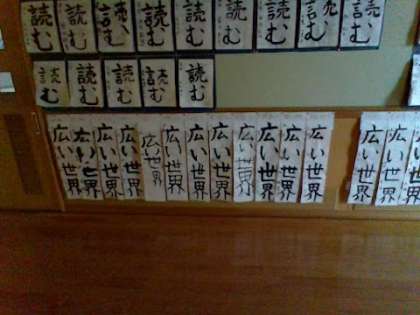 読む
読む
読む
読む
読む
読む
読む
読む
読む
読む
読む
読む
読む
読む
広い世界
広い世界
広い世界
広い世界
広い世界
広い世界
広い世界
広い世界
広い世界
広い世界
広い世界
広い世界
広い世界
広い世界